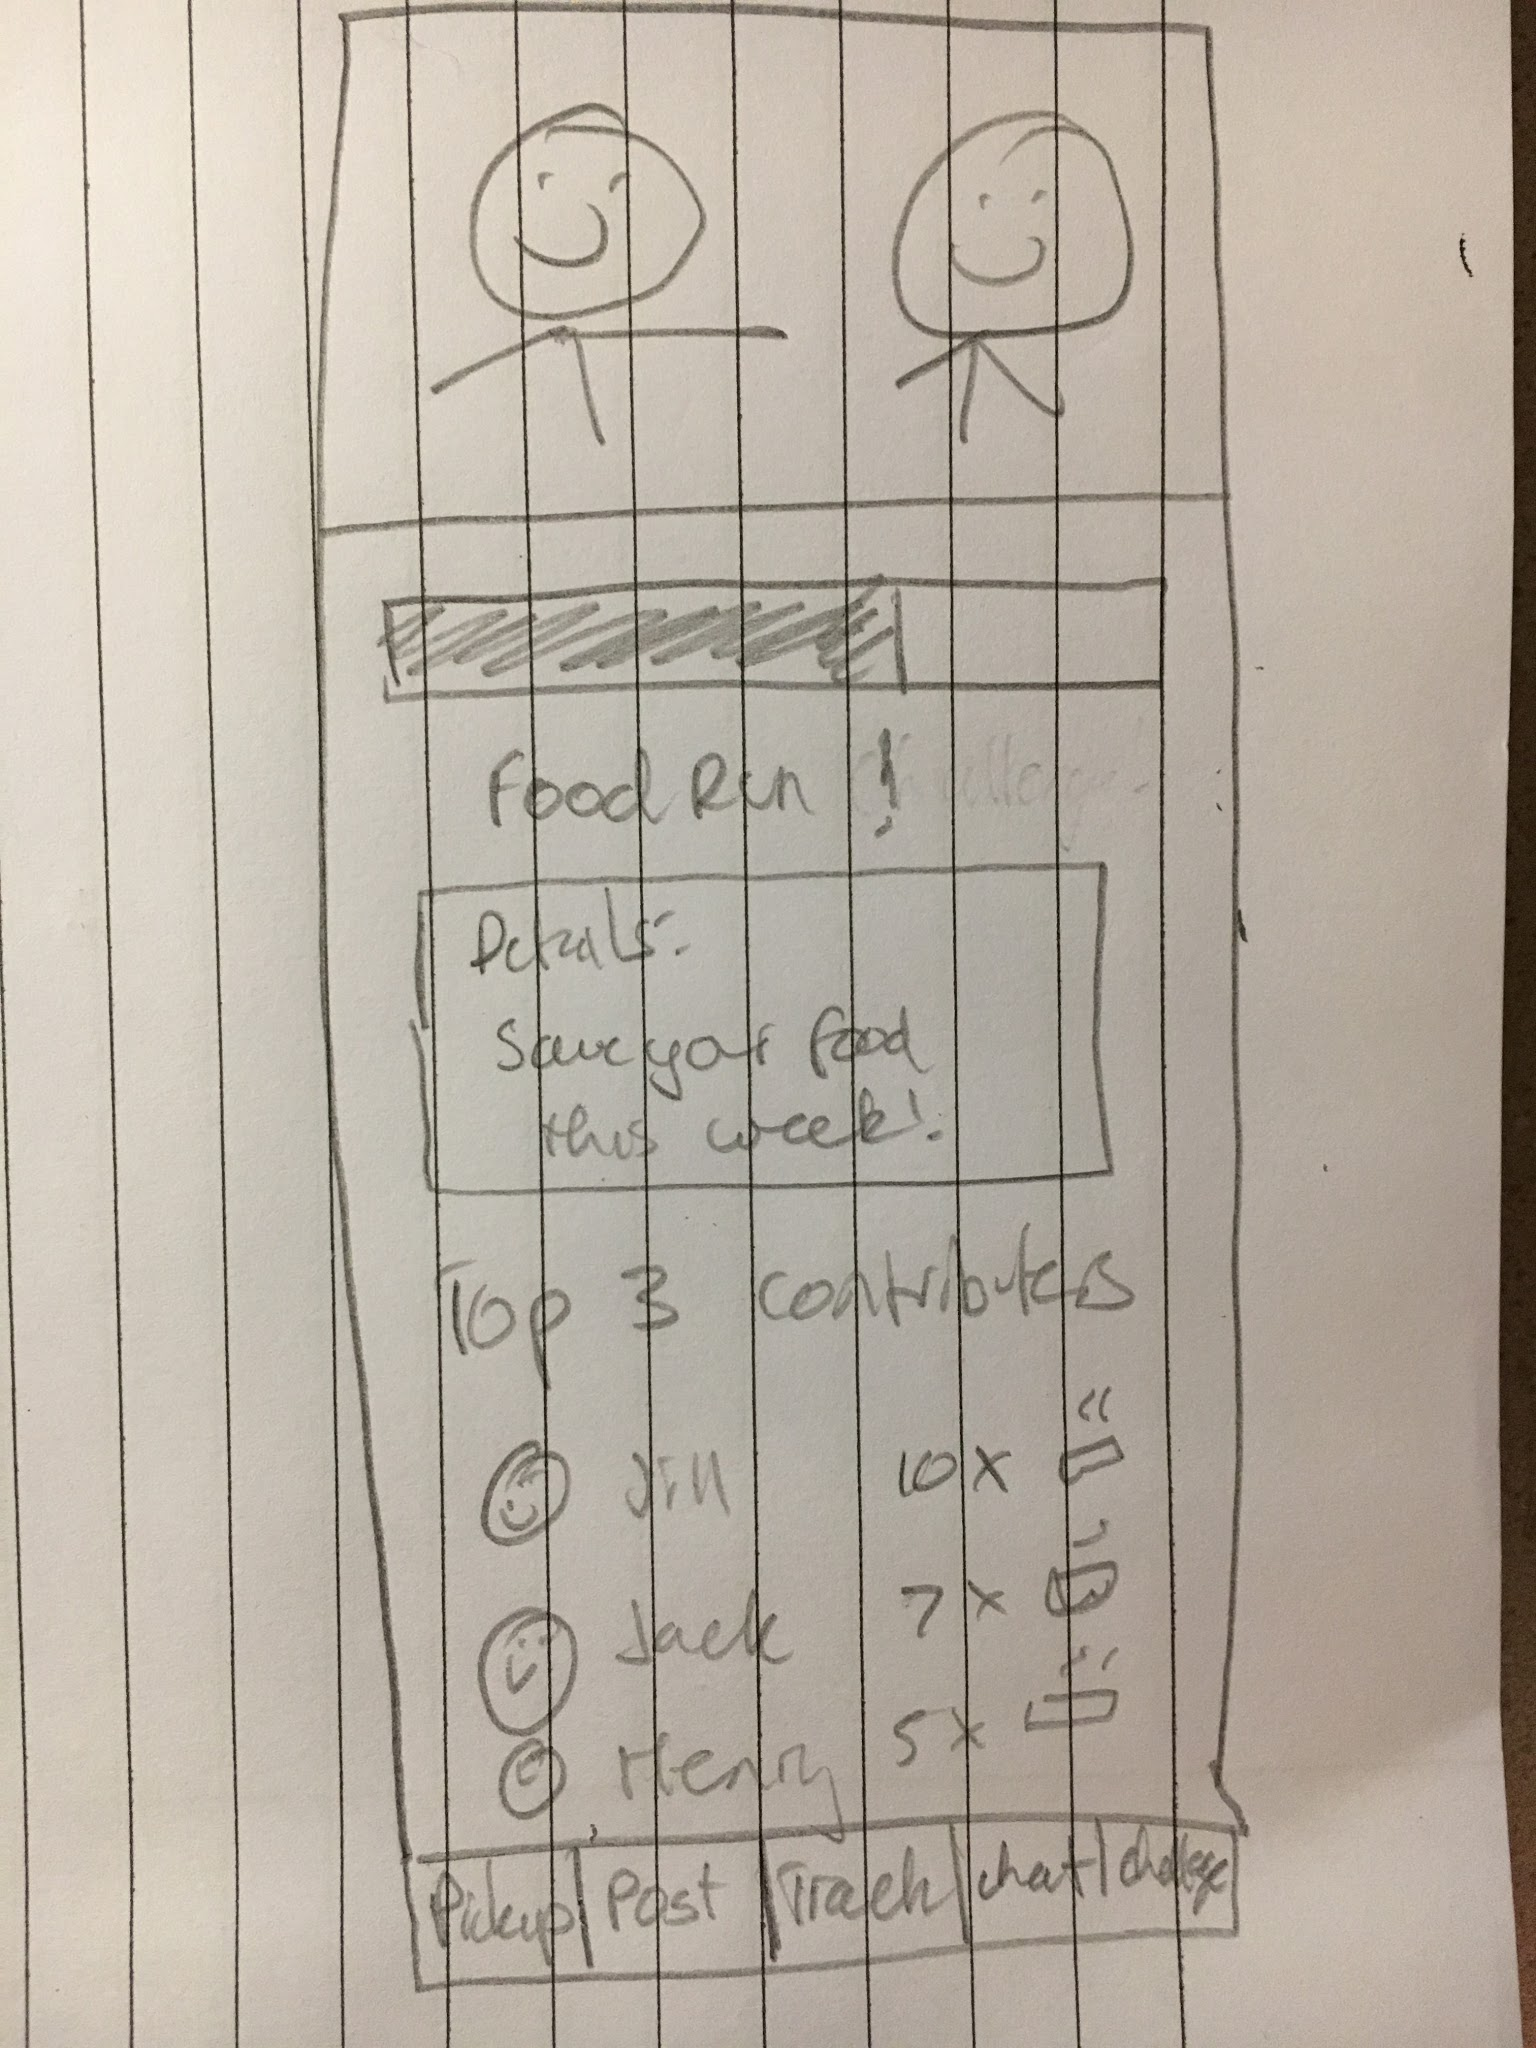 Food Run !
Details:
Save your food
this week!
Top 3 contributers
Jill 10 x
Jack 7 x
Henry 5 x
Pickup Post Track chat challenge